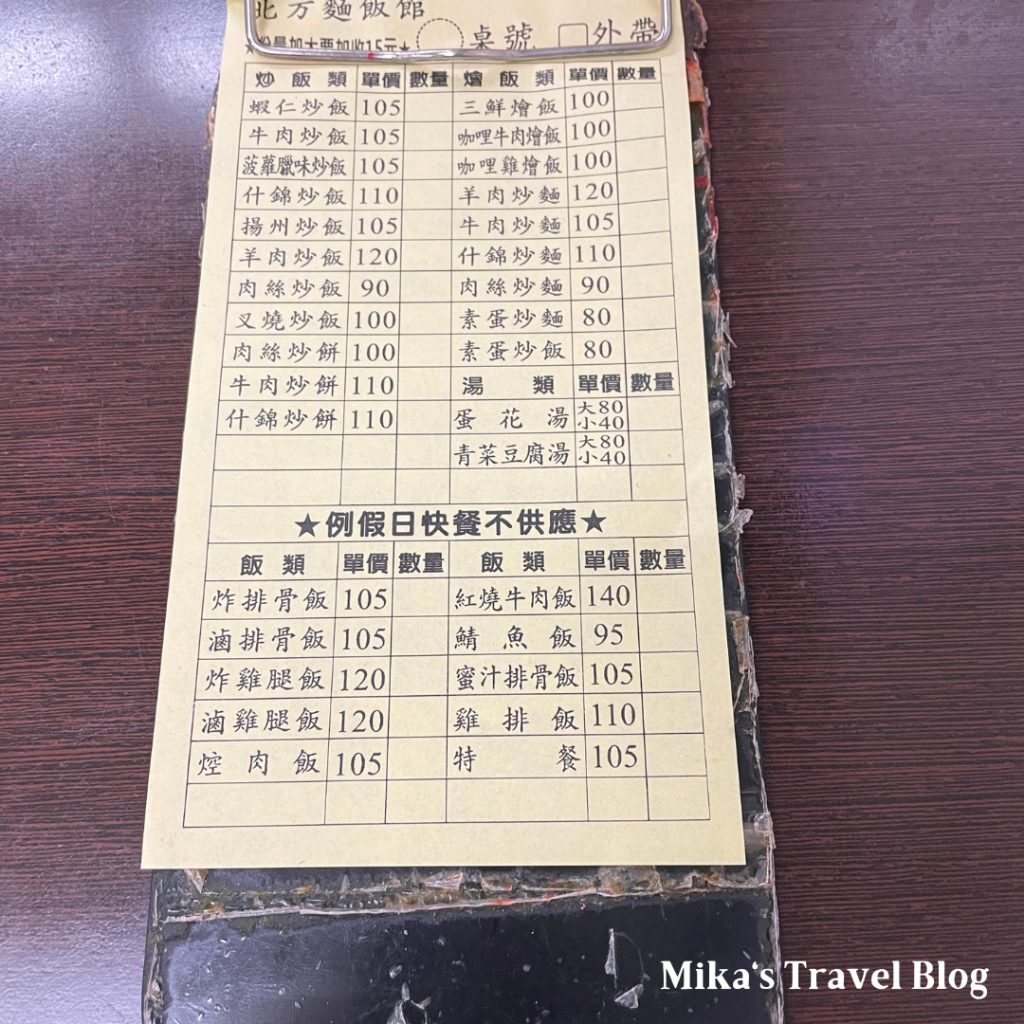 北方麵飯館
加大要加收15元★ 桌號 外帶
炒飯類 單價 數量 燴飯類 單價 數量
蝦仁炒飯 105 三鮮燴飯 100
牛肉炒飯 105 咖哩牛肉燴飯 100
菠蘿臘味炒飯 105 咖哩雞燴飯 100
什錦炒飯 110 羊肉炒麵 120
揚州炒飯 105 牛肉炒麵 105
羊肉炒飯 120 什錦炒麵 110
肉絲炒飯 90 肉絲炒麵 90
叉燒炒飯 100 素蛋炒麵 80
肉絲炒餅 100 素蛋炒飯 80
牛肉炒餅 110 湯類 單價 數量
什錦炒餅 110 蛋花湯 大80 小40
青菜豆腐湯 大80 小40
★例假日快餐不供應★
飯類 單價 數量 飯類 單價 數量
炸排骨飯 105 紅燒牛肉飯 140
滷排骨飯 105 鯖魚飯 95
炸雞腿飯 120 蜜汁排骨飯 105
滷雞腿飯 120 雞排飯 110
焢肉飯 105 特餐 105
Mika's Travel Blog